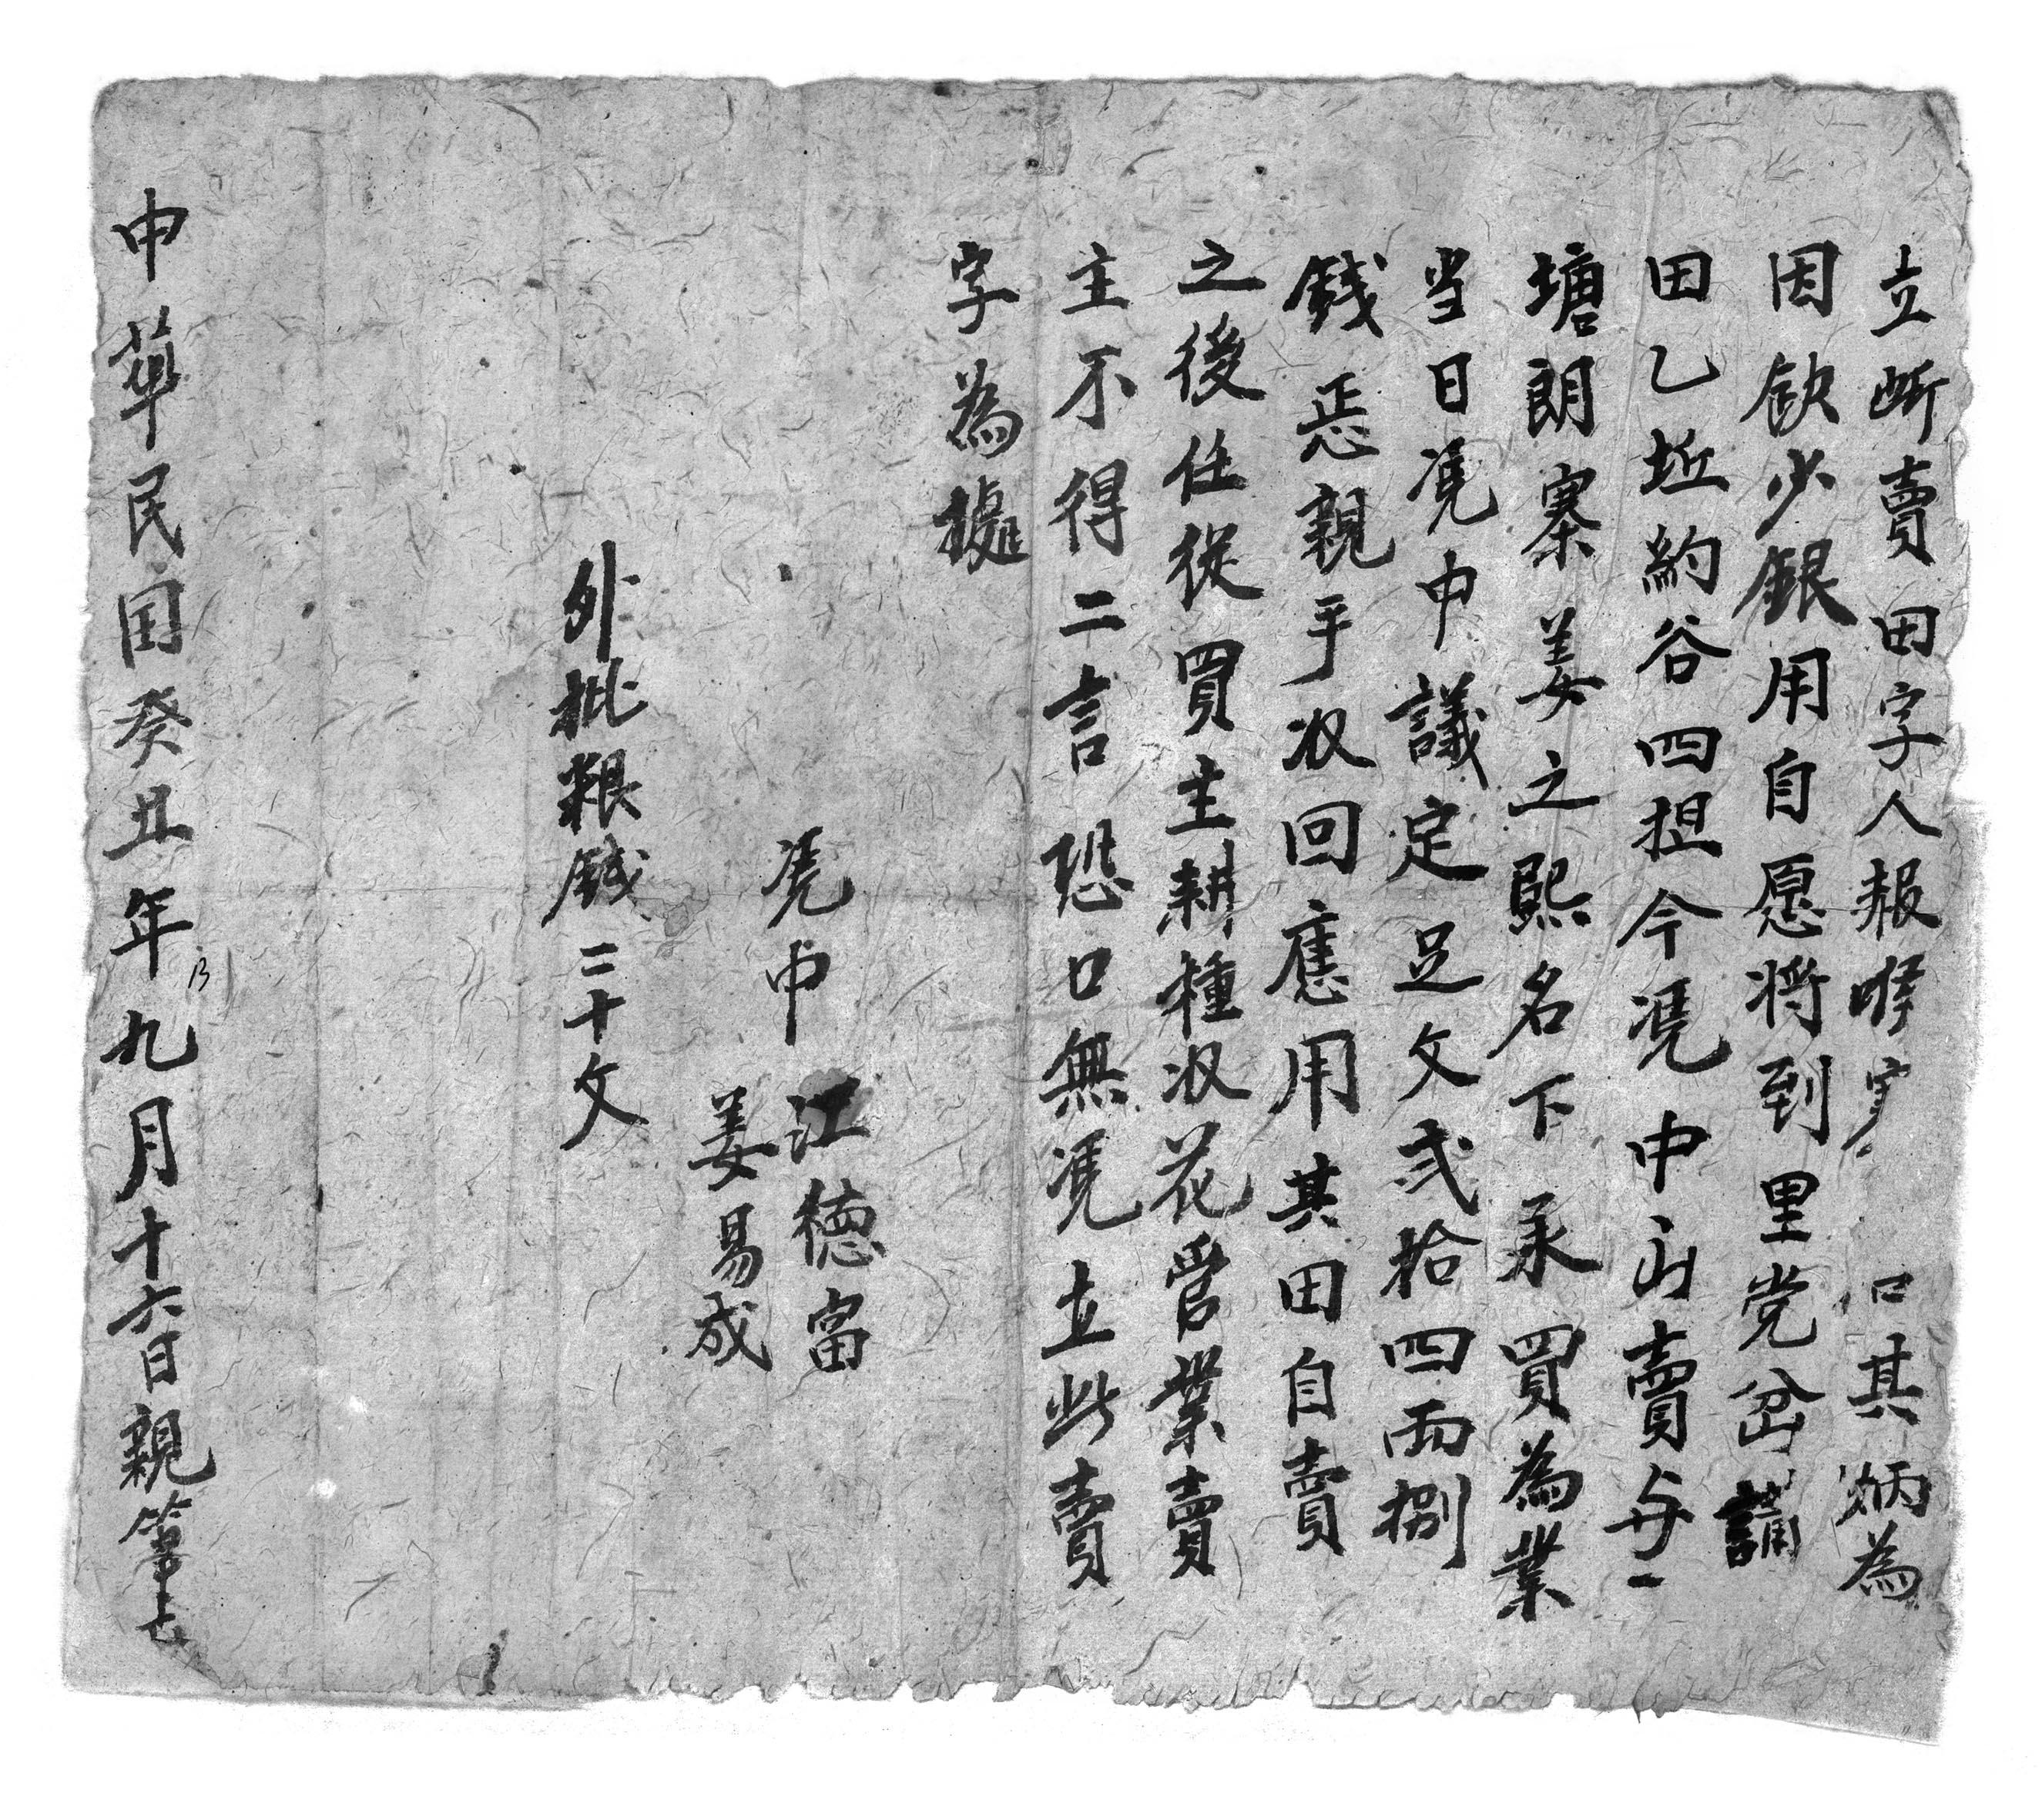 立断賣田字人報 其炳為
因欽少銀用自愿将到里党岔
田乙坵約谷四担今凴中 賣与
塘朗寨姜之熙名下承買為業
当日凴中議定足文弍拾四両捌
錢 親手收回應用其田自賣
之後任從買主耕種收花管業賣
主不得二言恐口無凴立此賣
字為據
凴中 江德富
姜易成
外批粮錢二十文
中華民国癸丑年九月十六日親筆立